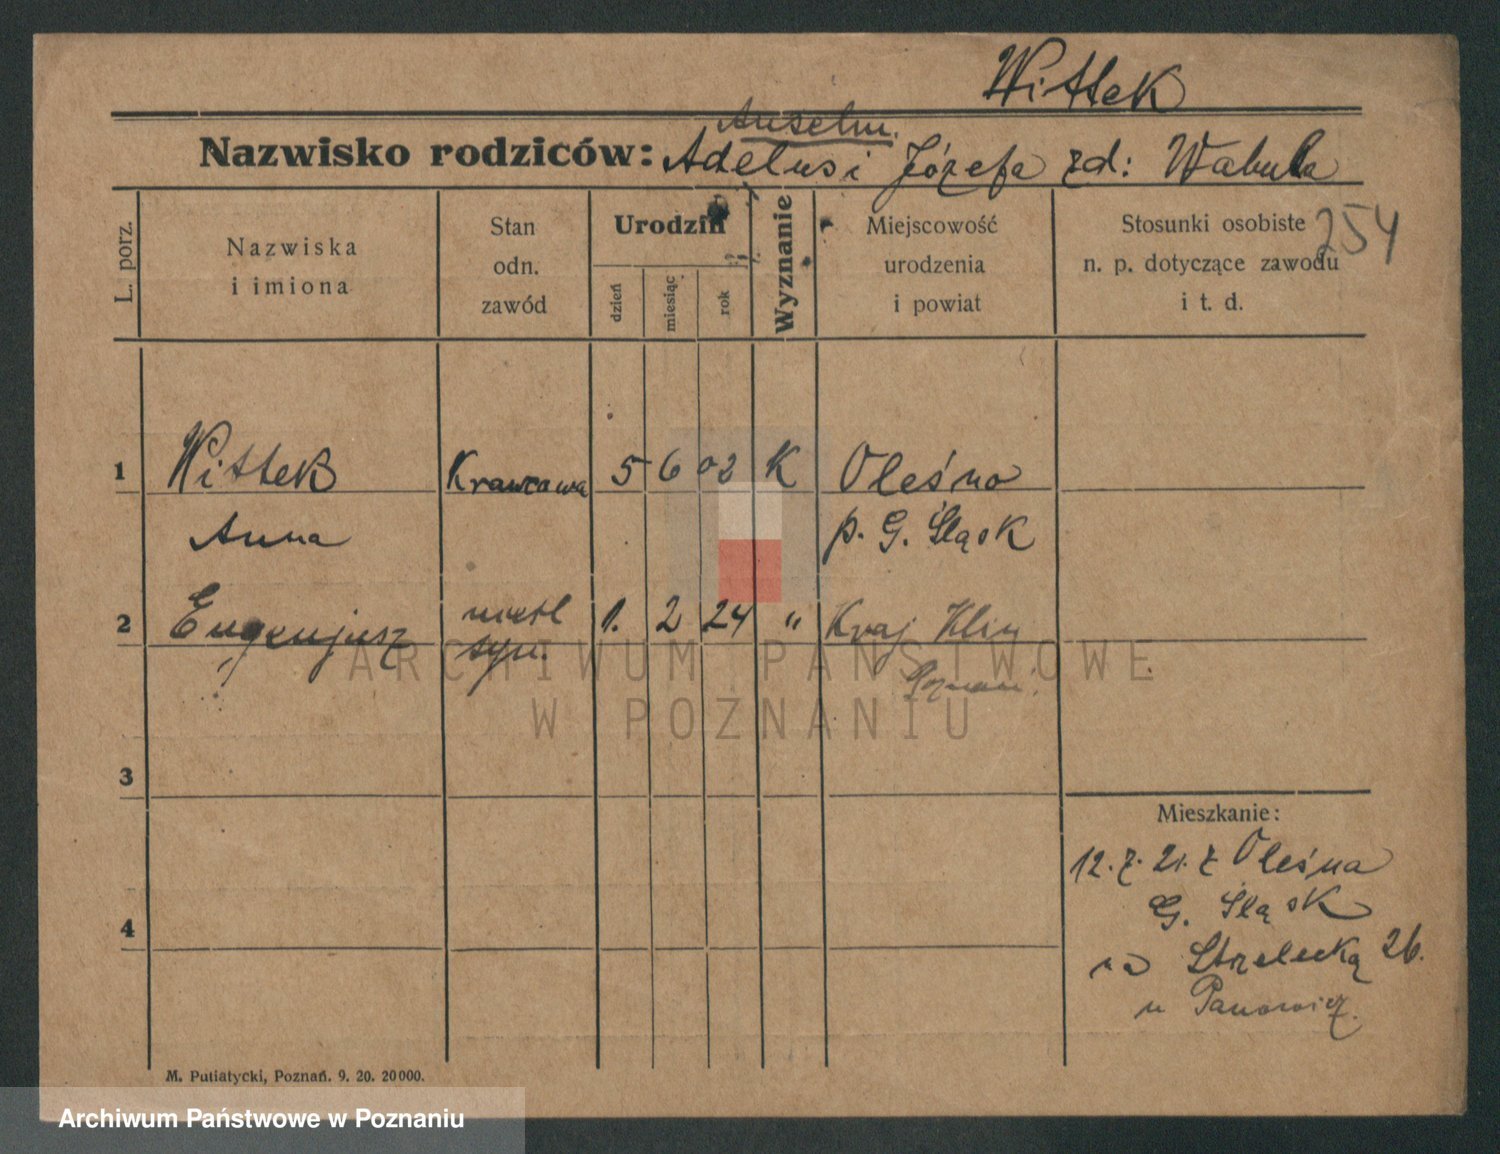 Wittek
Anselm.
Nazwisko rodziców: Adelus i Józefa zd: Wabula
L. porz.
Nazwiska
i imiona
Stan
odn.
zawód
Urodzin
dzień
miesiąc
rok
Wyznanie
Miejscowość
urodzenia
i powiat
Stosunki osobiste
n. p. dotyczące zawodu
i t. d.
254
1 Wittek Krawcowa 5 6 02 K Oleśno
Anna p. G. Śląsk
2 Eugenjusz nieśl 1. 2 24 " Kraj Klin
syn. Poznań.
ARCHIWUM PAŃSTWOWE
W POZNANIU
3
Mieszkanie:
12. 7. 21. z Oleśna
G. Śląsk
4
na Strzelecką 26.
u Panowicz.
M. Putiatycki, Poznań. 9. 20. 20000.
Archiwum Państwowe w Poznaniu